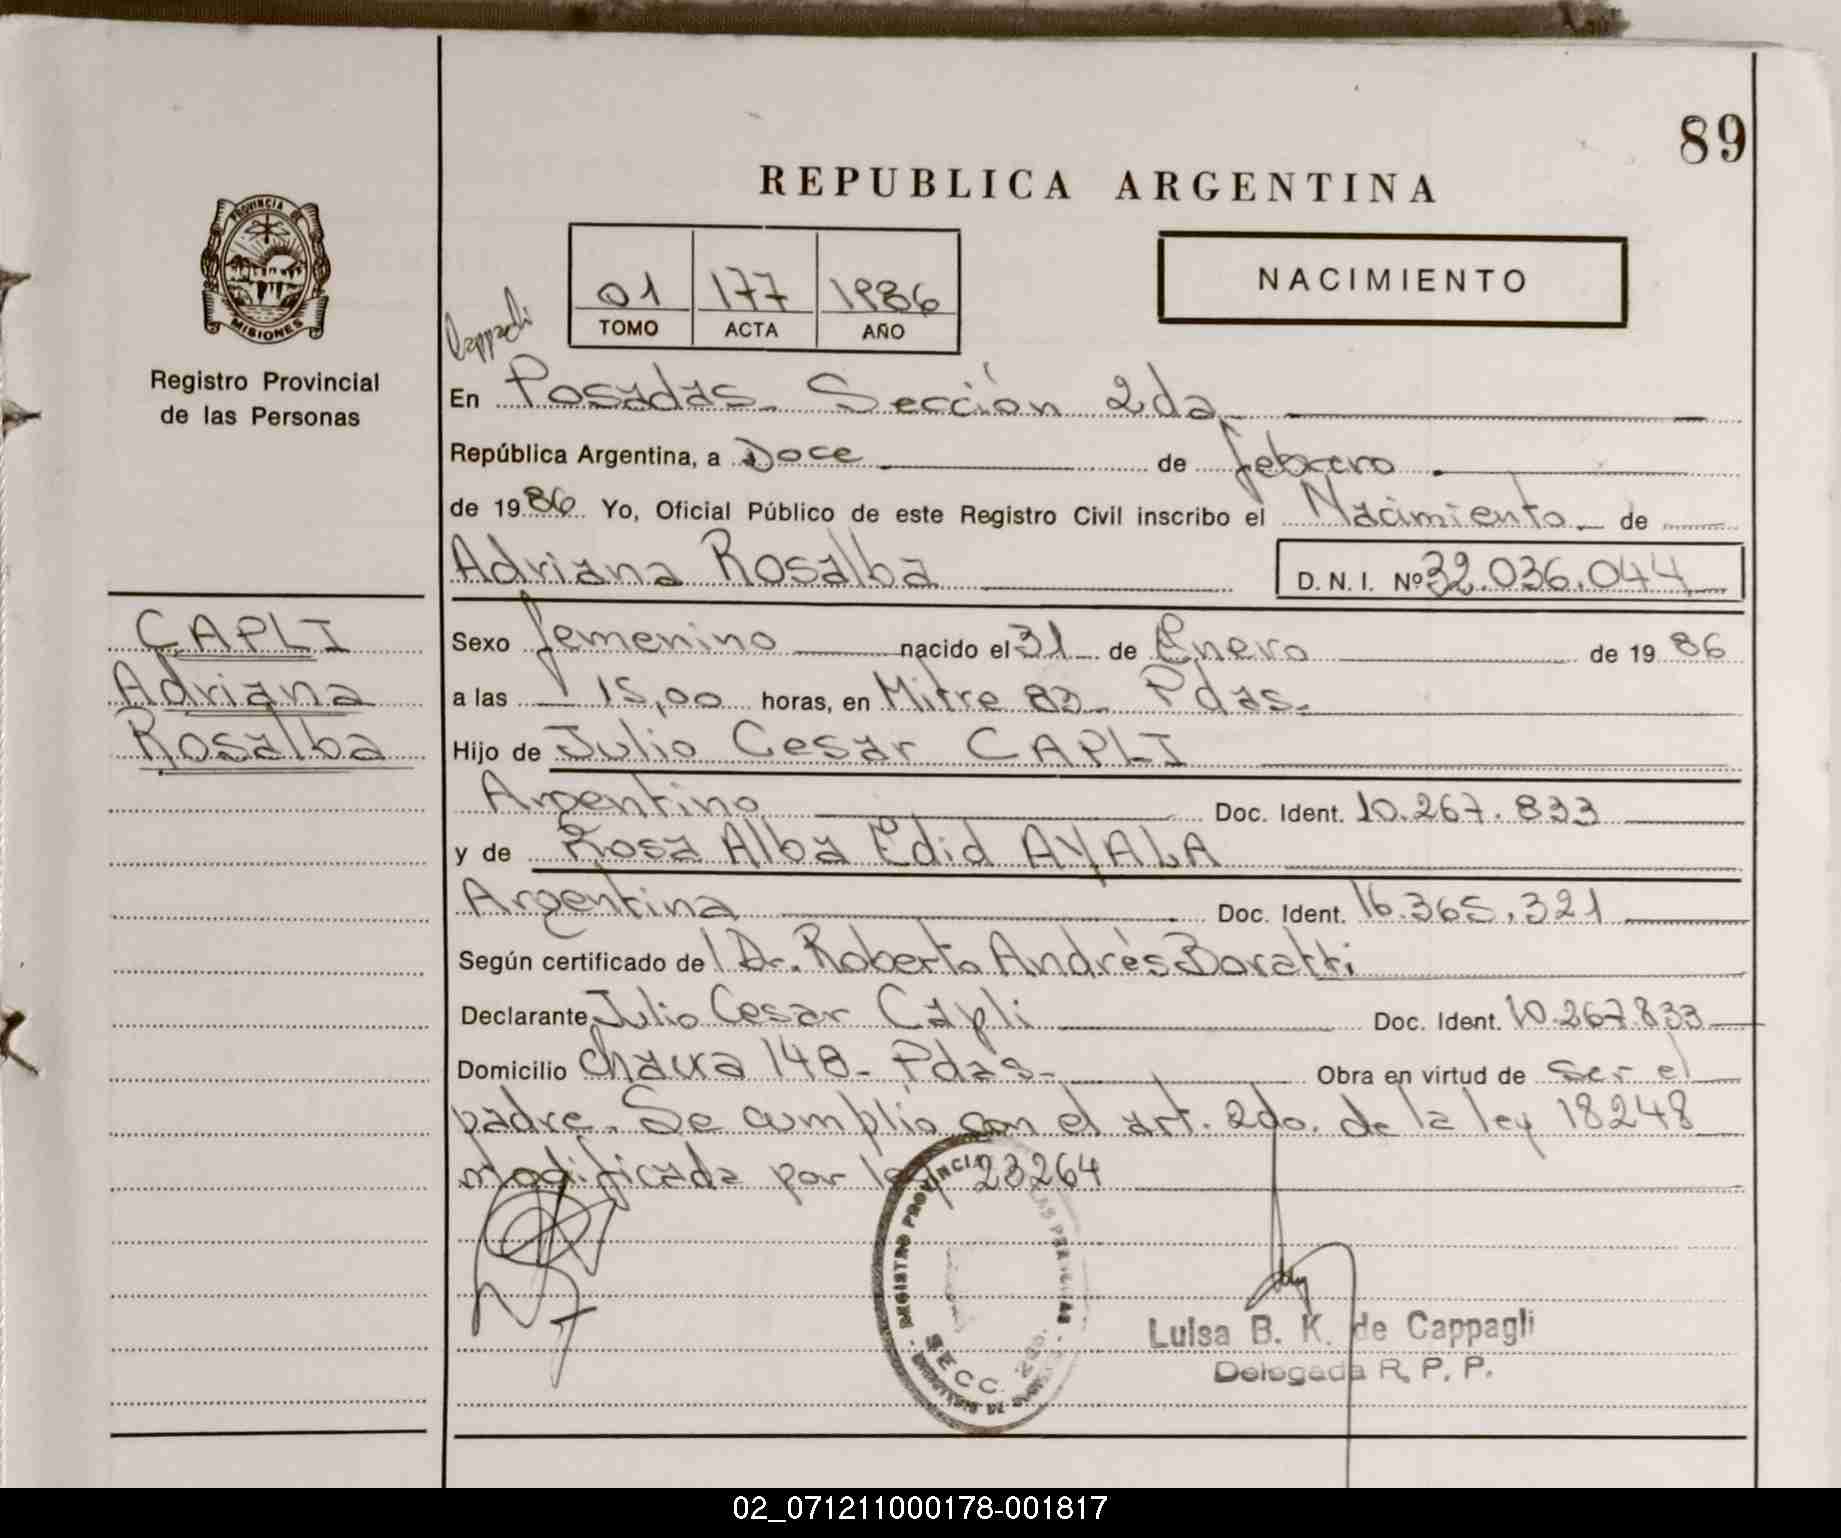 89
REPUBLICA ARGENTINA
PROVINCIA DE
MISIONES
Registro Provincial
de las Personas
01 177 1986
TOMO ACTA AÑO
NACIMIENTO
En Posadas - Sección 2da
República Argentina, a Doce de febrero
de 1986 Yo, Oficial Público de este Registro Civil inscribo el Nacimiento de
Adriana Rosalba
D. N. I. Nº 32.036.044
CAPLI
Adriana
Rosalba
Sexo femenino nacido el 31 de Enero de 1986
a las 15,00 horas, en Mitre 83 - Pdas.
Hijo de Julio Cesar CAPLI
Argentino Doc. Ident. 10.267.833
y de Rosa Alba Edid AYALA
Argentina Doc. Ident. 16.365.321
Según certificado del Dr. Roberto Andrés Boratti
Declarante Julio Cesar Capli Doc. Ident. 10.267.833
Domicilio 148 - Pdas - Obra en virtud de ser el
padre. Se cumplió con el art. 2do. de la ley 18248
modificada por ley 23264
REGISTRO PROVINCIAL
SECC. 2da.
Luisa B. K. de Cappagli
Delegada R. P. P.
02_071211000178-001817